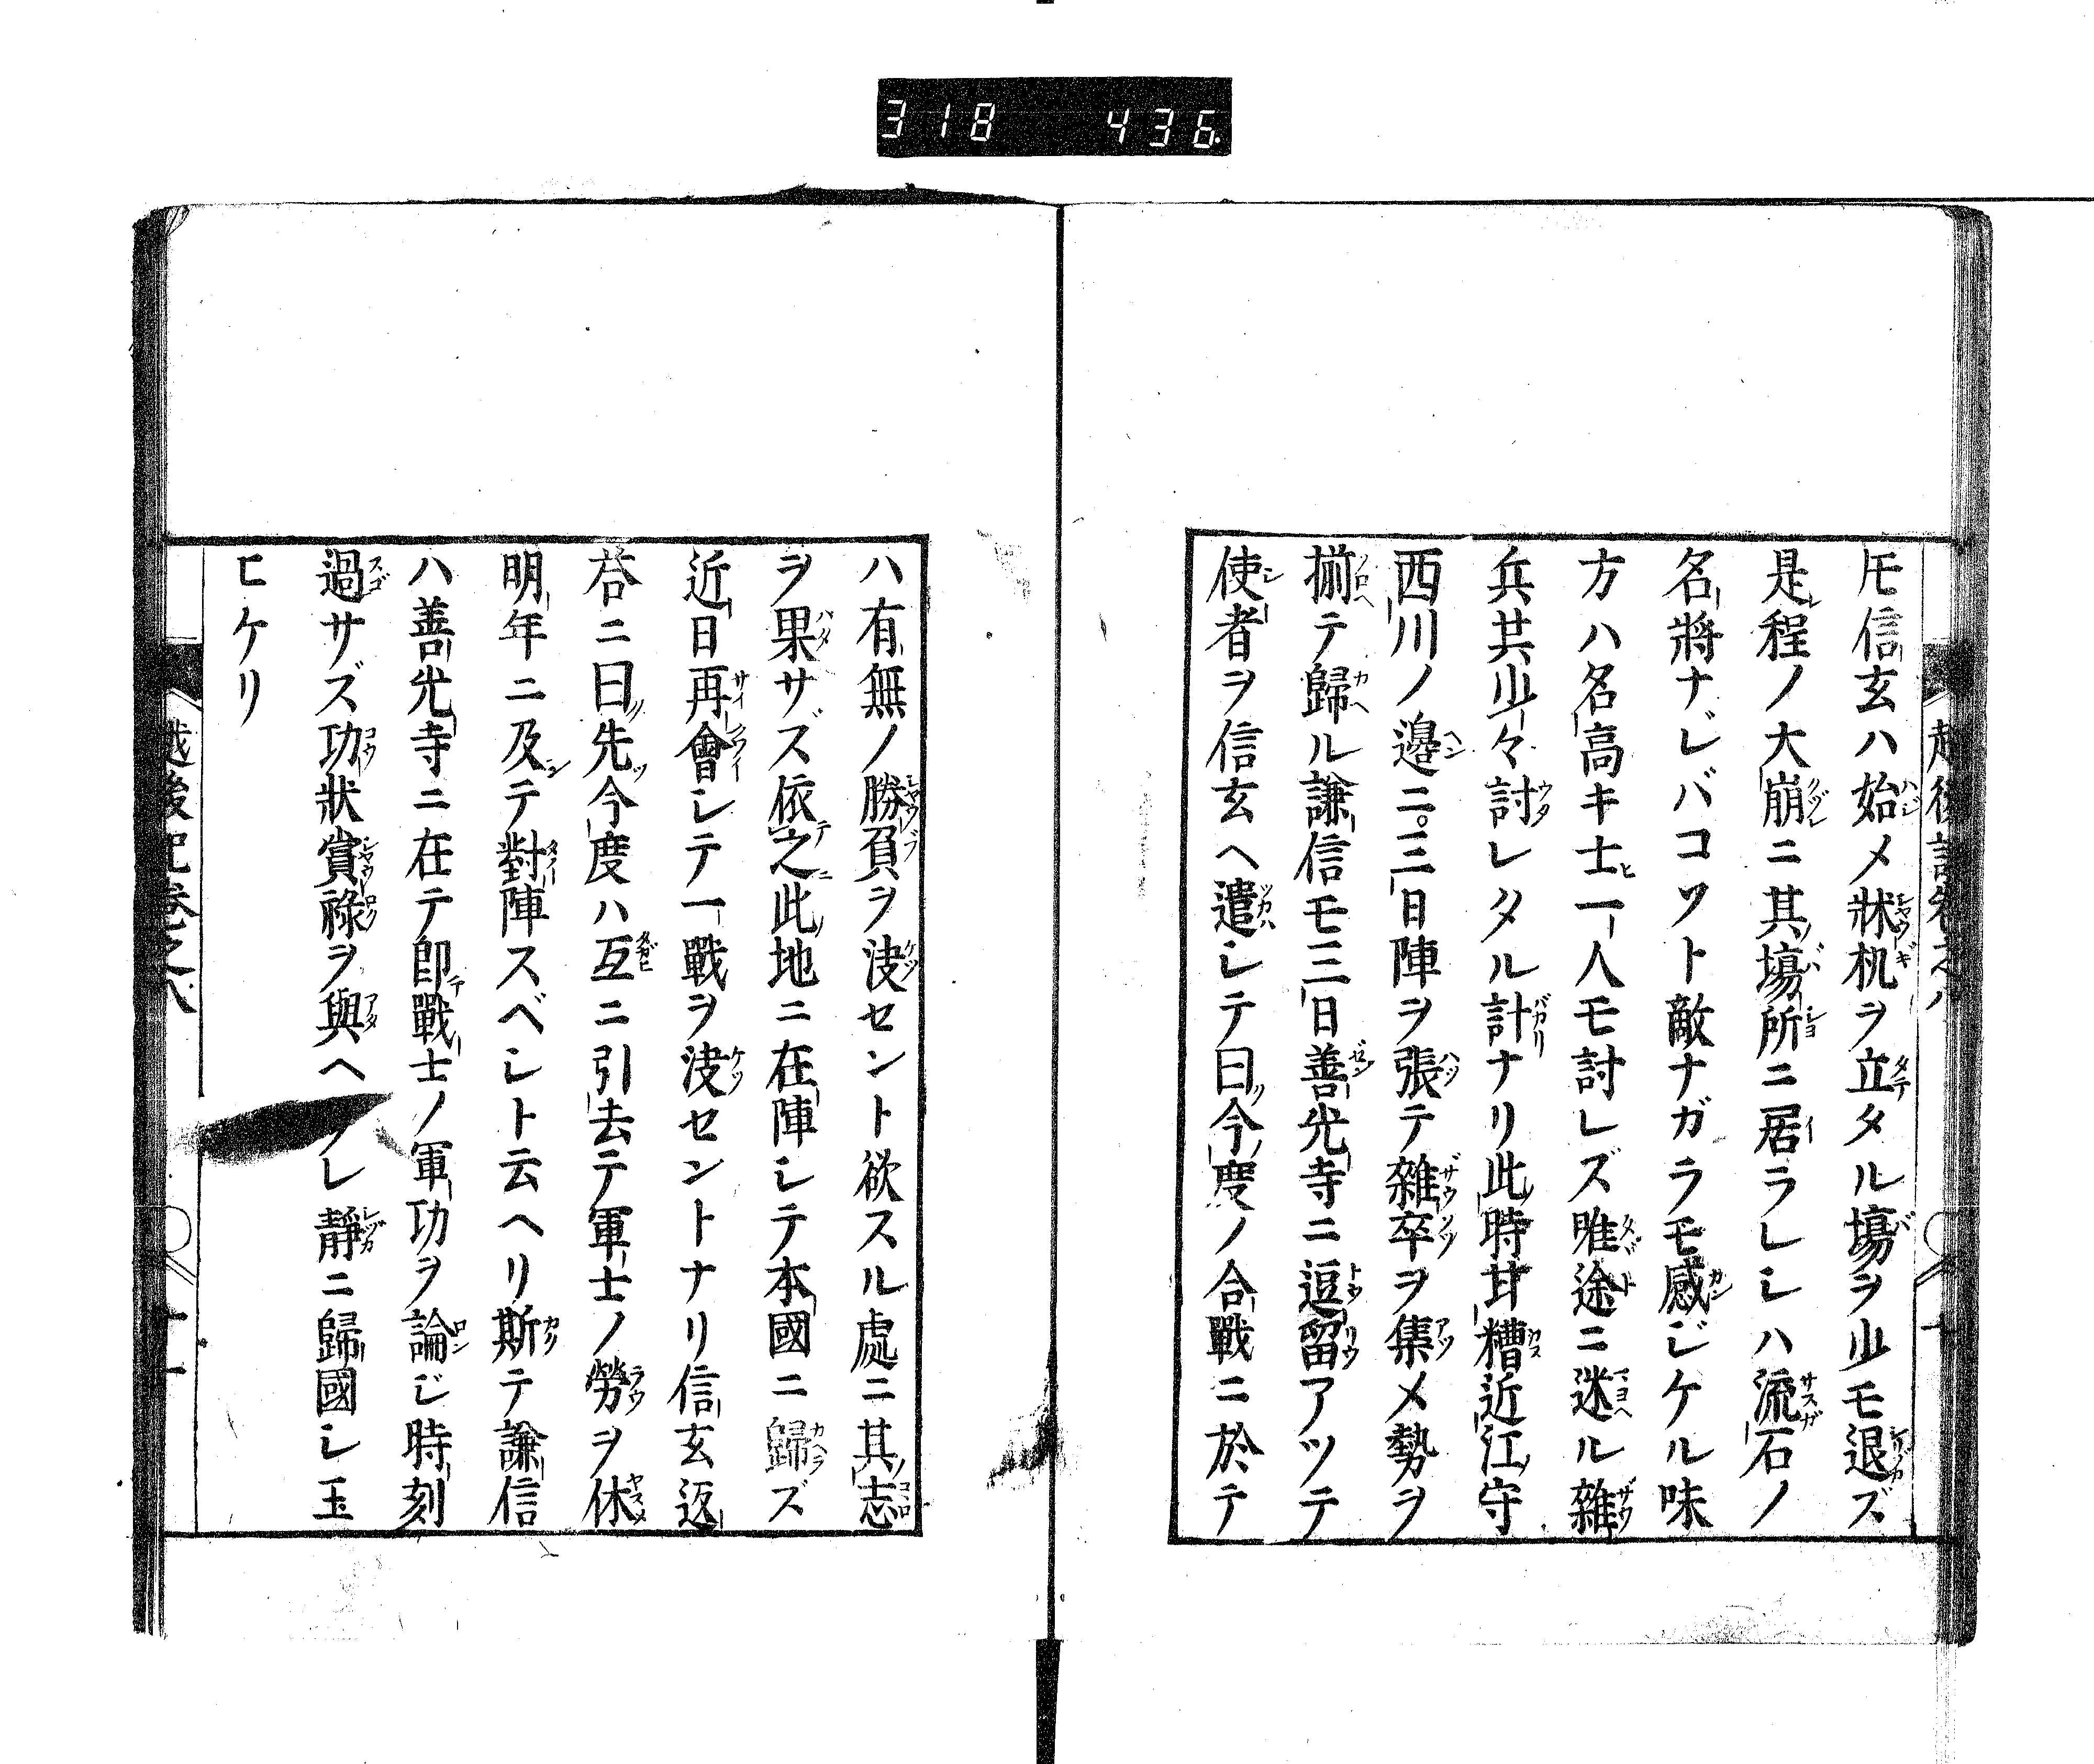 318 436
𪜈信玄ハ始メ牀机ヲ立タル塲ヲ少モ退ズ
是程ノ大崩ニ其塲所ニ居ラレシハ流石ノ
名將ナレバコソト敵ナガラモ感ジケル味
方ハ名高キ士一人モ討レズ唯途ニ迷ル雜
兵共少々討レタル計ナリ此時甘糟近江守
西川ノ邊ニ三日陣ヲ張テ雜卒ヲ集メ勢ヲ
揃テ歸ル謙信モ三日善光寺ニ逗留アツテ
使者ヲ信玄ヘ遣シテ曰今度ノ合戰ニ於テ
ハ有無ノ勝負ヲ决セント欲スル處ニ其志
ヲ果サズ依之此地ニ在陣シテ本國ニ歸ズ
近日再會シテ一戰ヲ决セントナリ信玄返
荅ニ曰先今度ハ互ニ引去テ軍士ノ勞ヲ休
明年ニ及テ對陣スベシト云ヘリ斯テ謙信
ハ善光寺ニ在テ即戰士ノ軍功ヲ論ジ時刻
過サズ功狀賞祿ヲ與ヘラレ靜ニ歸國シ玉
ヒケリ
越後記卷之八 十一